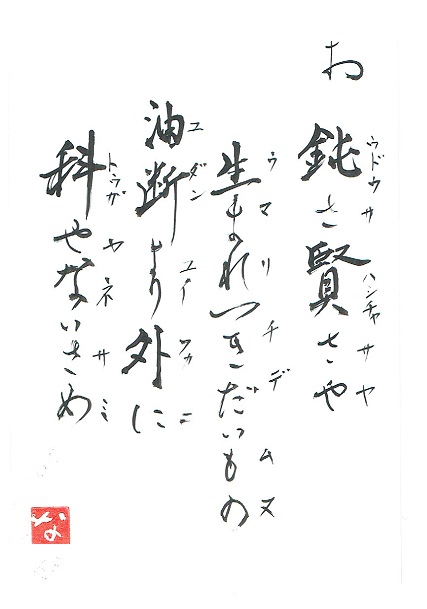 お
鈍さ賢さや
ウドウサ ハシチャサヤ
生まれつきだいもの
ウマリチデムヌ
油断より外に
ユダンユイフカニ
科やないさめ
トゥガヤネサミ
な